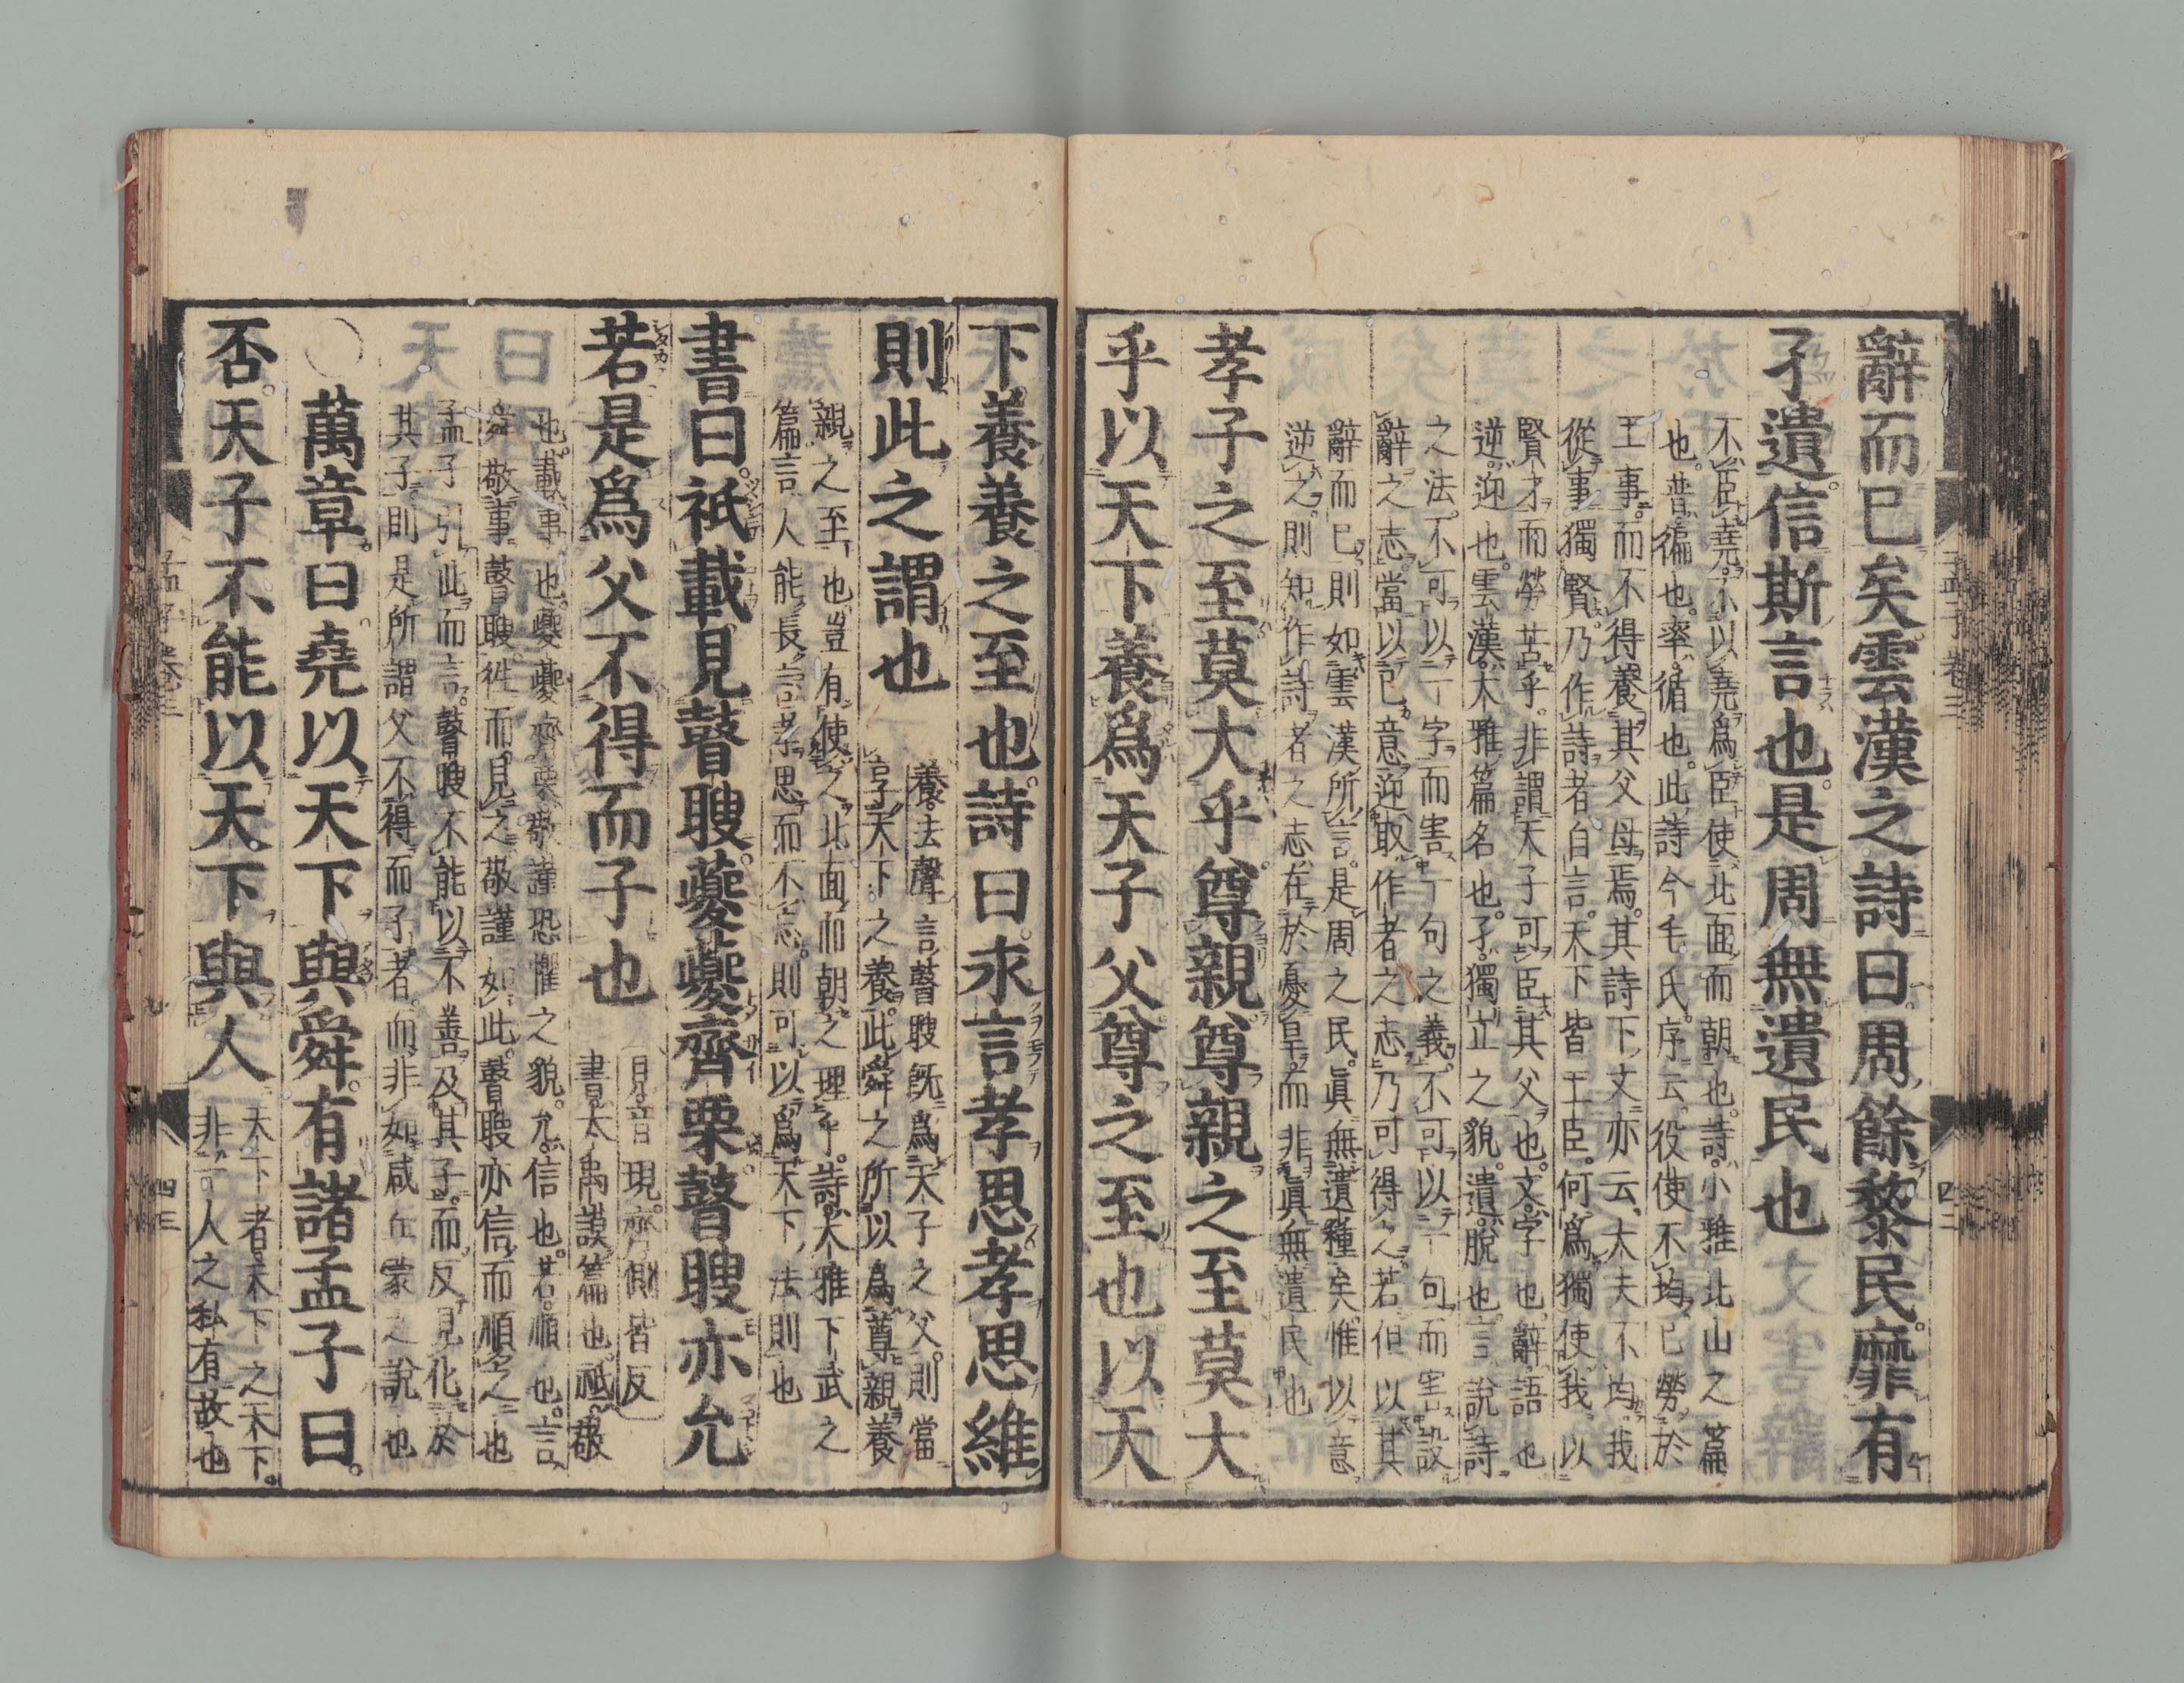 辭而已矣雲漢之詩曰周餘黎民靡有
孑遺信斯言也是周無遺民也
不臣堯不以堯爲臣使北面而朝也詩小雅北山之篇
也普徧也率循也此詩今毛氏序云役使不均已勞於
王事而不得養其父母焉其詩下文亦云大夫不均我
從事獨賢乃作詩者自言天下皆王臣何爲獨使我以
賢才而勞苦乎非謂天子可臣其父也文字也辭語也
逆迎也雲漢大雅篇名也孑獨立之貌遺脫也言說詩
之法不可以一字而害一句之義不可以一句而害設
辭之志當以己意迎取作者之志乃可得之若但以其
辭而已則如雲漢所言是周之民眞無遺種矣惟以意
逆之則知作詩者之志在於憂旱而非眞無遺民也
孝子之至莫大乎尊親尊親之至莫大
乎以天下養爲天子父尊之至也以天
孟子卷三
四二
下養養之至也詩曰永言孝思孝思維
則此之謂也
養去聲言瞽瞍旣爲天子之父則當
享天下之養此舜之所以爲尊親養
親之至也豈有使之北面而朝之理乎詩大雅下武之
篇言人能長言孝思而不忘則可以爲天下法則也
書曰祗載見瞽瞍夔夔齊栗瞽瞍亦允
若是爲父不得而子也
見音現齊側皆反
書大禹謨篇也祗敬
也載事也夔夔齊栗敬謹恐懼之貌允信也若順也言
舜敬事瞽瞍往而見之敬謹如此瞽瞍亦信而順之也
孟子引此而言瞽瞍不能以不善及其子而反見化於
其子則是所謂父不得而子者而非如咸丘蒙之說也
○萬章曰堯以天下與舜有諸孟子曰
否天子不能以天下與人
天下者天下之天下
非一人之私有故也
孟子卷三
四三